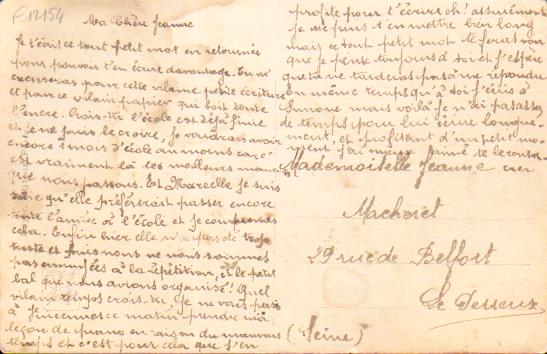 F12154
Ma Chère Jeanne
Je t'écris ce tout petit mot en retournée
pour pouvoir t'en écrire davantage. Tu m'
excuseras pour cette vilaine petite écriture
et pour ce vilain papier qui boit toute
l'encre. Crois-tu l'école est déjà finie
et je ne puis le croire, je voudrais avoir
encore 1 mois d'école au moins car c'
est vraiment là les meilleurs mom
que nous passons. Et Marcelle je suis
sûre qu'elle préférerait passer encore
toute l'année à l'école et je comprends
cela. Enfin hier elle n'a pas été trop
triste et puis nous ne nous sommes
pas ennuyées à la répétition, et le petit
bal que nous avions organisé! Quel
vilain temps crois-tu, je ne vais pas
à Vincennes ce matin prendre ma
leçon de piano en raison du mauvais
temps et c'est pour cela que j'en
profite pour t'écrire oh! assurément
je ne puis t'en mettre bien long
mais ce tout petit mot te feras voir
que je pense toujours à toi et j'espère
que tu ne tarderas pas à me répondre
en même temps qu'à toi j'écris à
Simone mais voilà je n'ai pas assez
de temps pour lui écrire longue-
ment, et profitant d'un petit mo-
ment j'ai mieux aimé te le consa-
crer
Mademoiselle Jeanne
Macheret
29 rue de Belfort
Le Perreux
(Seine)